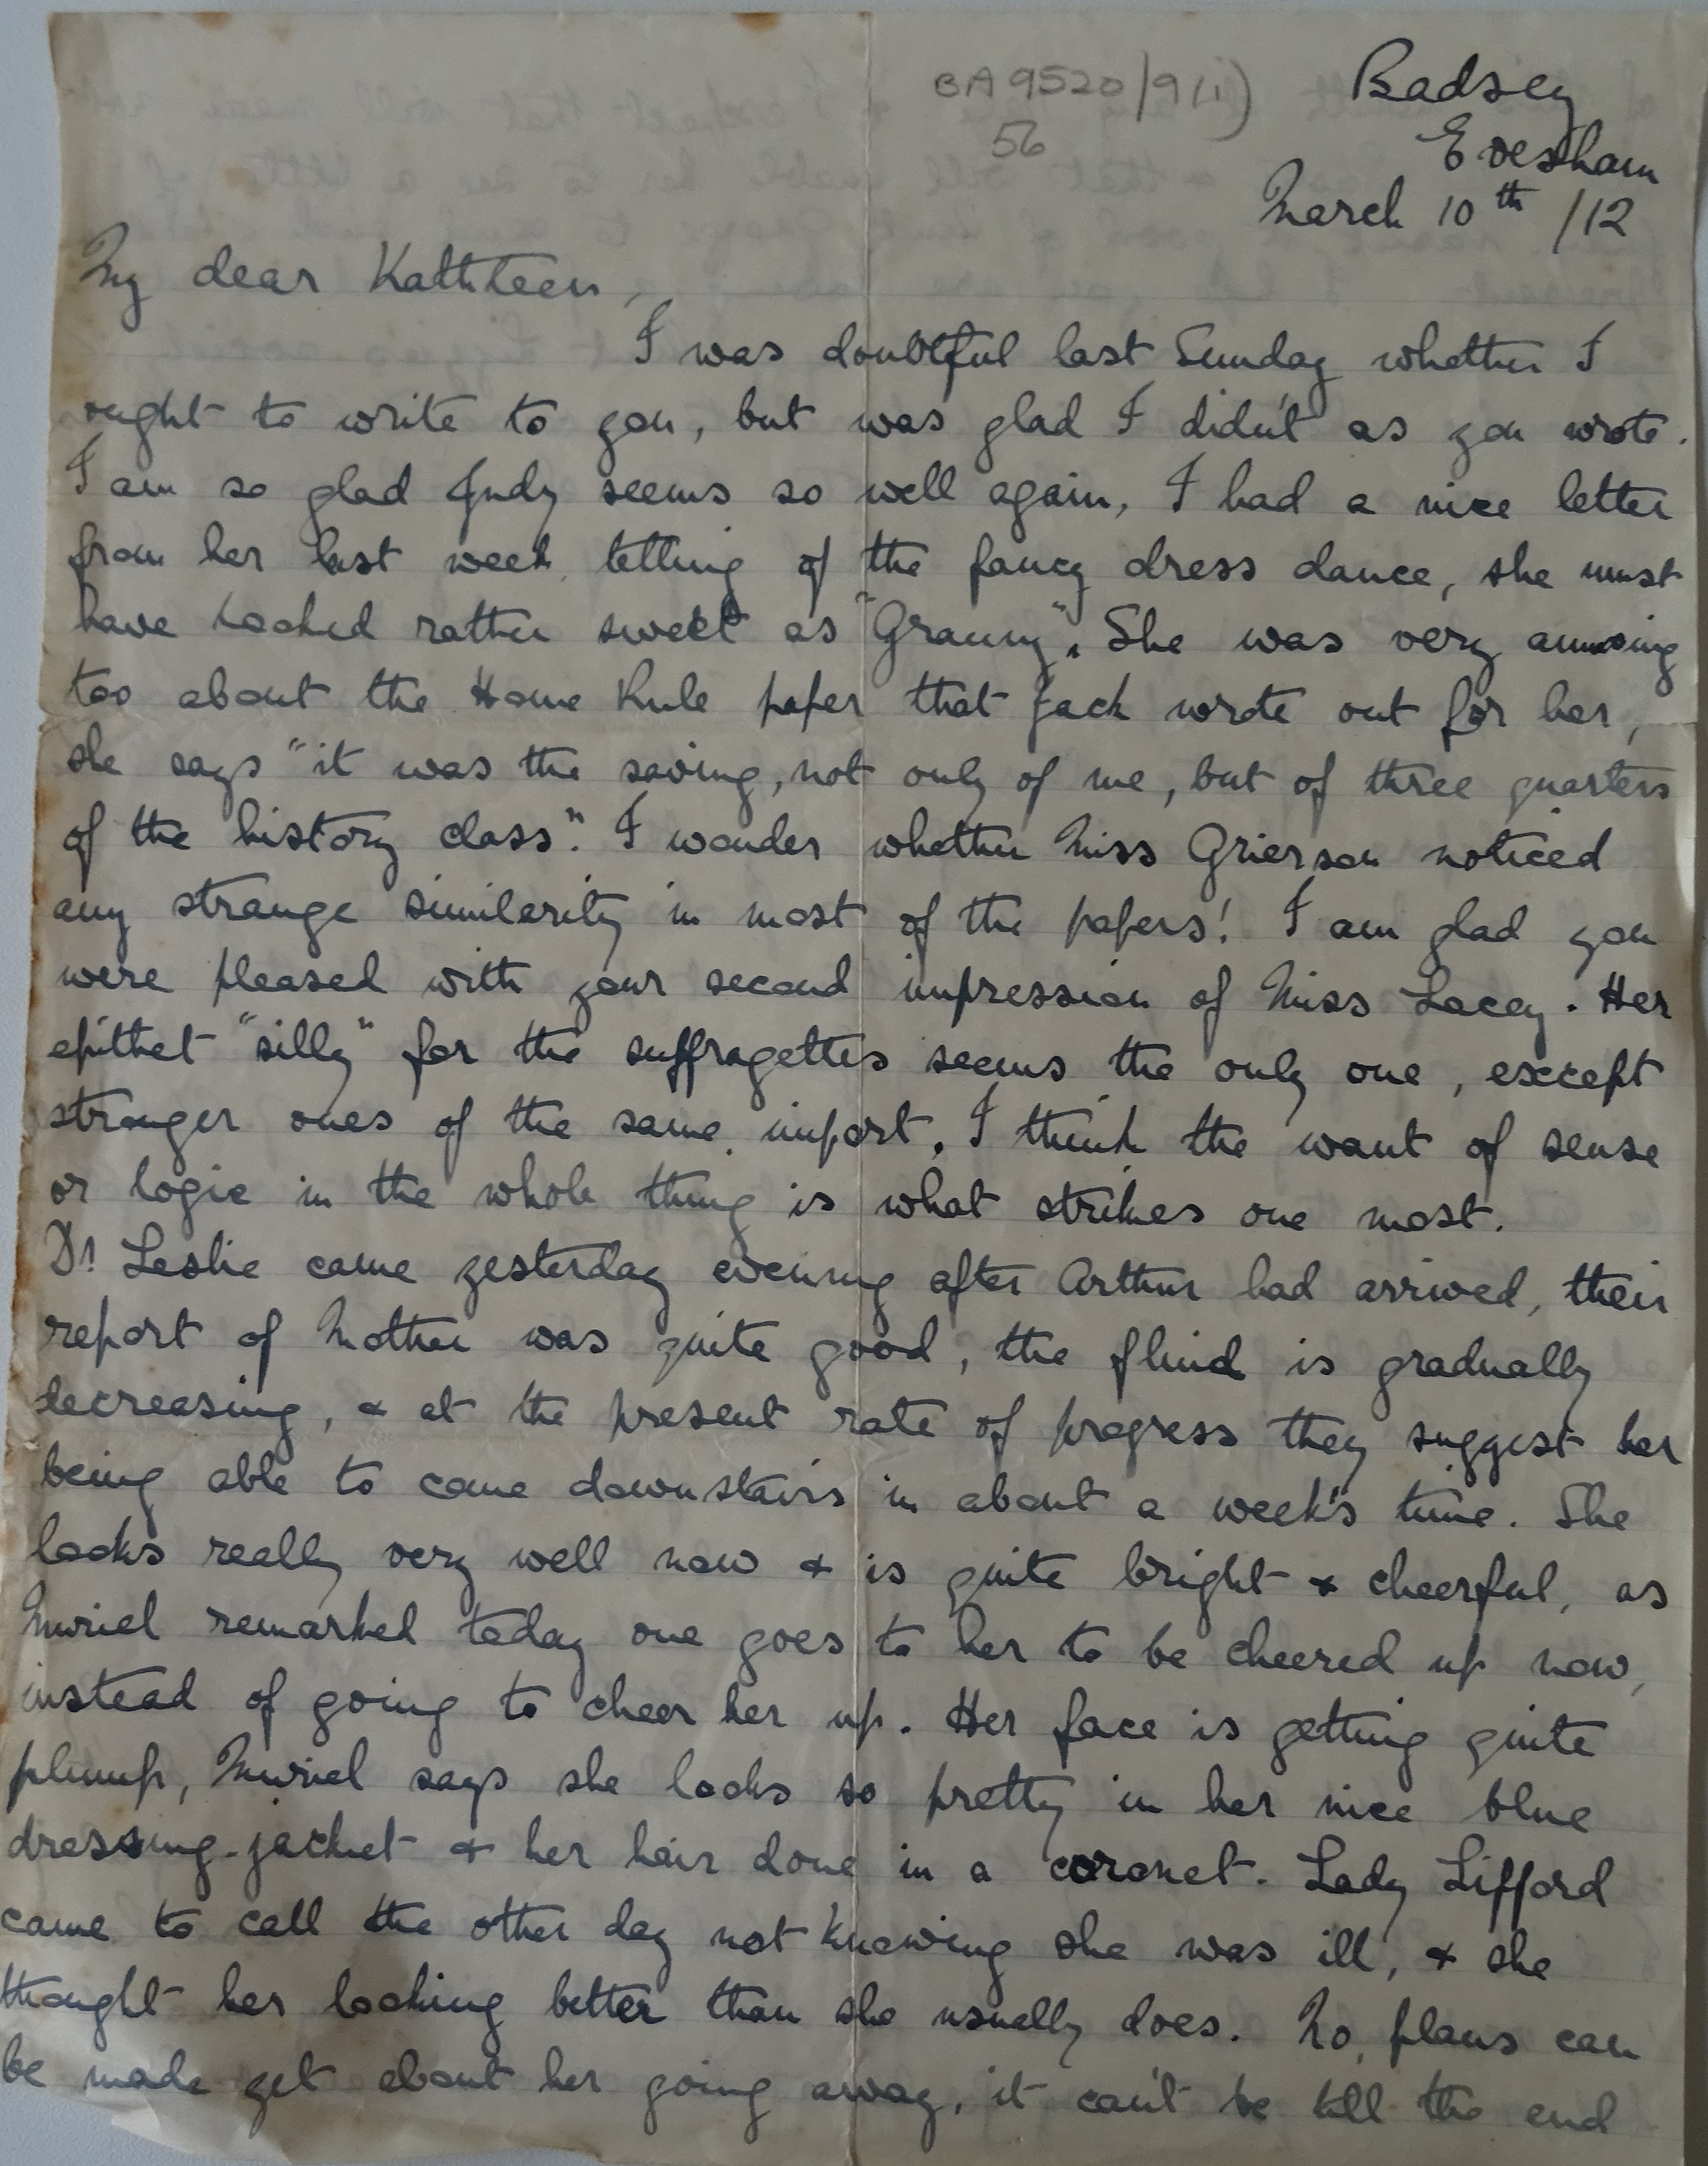 BA 9520/9(i)
56
Badsey
Evesham
March 10th /12
My dear Kathleen,
I was doubtful last Sunday whether I
ought to write to you, but was glad I didn't as you wrote.
I am so glad Judy seems so well again, I had a nice letter
from her last week telling of the fancy dress dance, she must
have looked rather sweet as "Granny". She was very amusing
too about the Home Rule paper that Jack wrote out for her,
she says "it was the saving, not only of me, but of three quarters
of the history class". I wonder whether Miss Grierson noticed
any strange similarity in most of the papers! I am glad you
were pleased with your second impression of Miss Lacey. Her
epithet "silly" for the suffragettes seems the only one, except
stronger ones of the same import. I think the want of sense
or logic in the whole thing is what strikes one most.
Dr Leslie came yesterday evening after Arthur had arrived, their
report of Mother was quite good, the fluid is gradually
decreasing, & at the present rate of progress they suggest her
being able to come downstairs in about a week's time. She
looks really very well now & is quite bright & cheerful, as
Muriel remarked today one goes to her to be cheered up now,
instead of going to cheer her up. Her face is getting quite
plump, Muriel says she looks so pretty in her nice blue
dressing-jacket & her hair done in a coronet. Lady Lifford
came to call the other day not knowing she was ill, & she
thought her looking better than she usually does. No plans can
be made yet about her going away, it can't be till the end